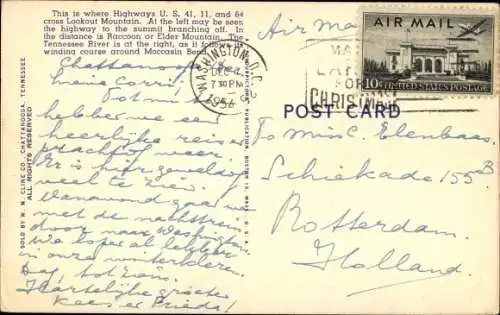 This is where Highways U. S. 41, 11, and 64
cross Lookout Mountain. At the left may be seen
the highway to the summit branching off. In
the distance is Raccoon or Elder Mountain. The
Tennessee River is at the right, as it follows its
winding course around Moccasin Bend.
Chattanooga
Lieve Corrie!
Tot nu toe
hebben we een
heerlijke reis en
prachtig weer.
Er is hier geweldig
veel te zien.
Vanavond gaan we
met de nachttrein
door naar Washington
We lopen al lekker
in onze winterkleren.
Dag, tot ziens.
Hartelijke groeten
Kees en Frieda!
SOLD BY W. M. CLINE CO., CHATTANOOGA, TENNESSEE
ALL RIGHTS RESERVED
WASHINGTON, D.C. 2
DEC 4
7 30 PM
1956
MA
EAR
FOR
CHRISTMAS
AIR MAIL
10¢ UNITED STATES POSTAGE
Air Mail
POST CARD
To Miss C. Elenbaas
Schiekade 155 B
Rotterdam.
Holland.